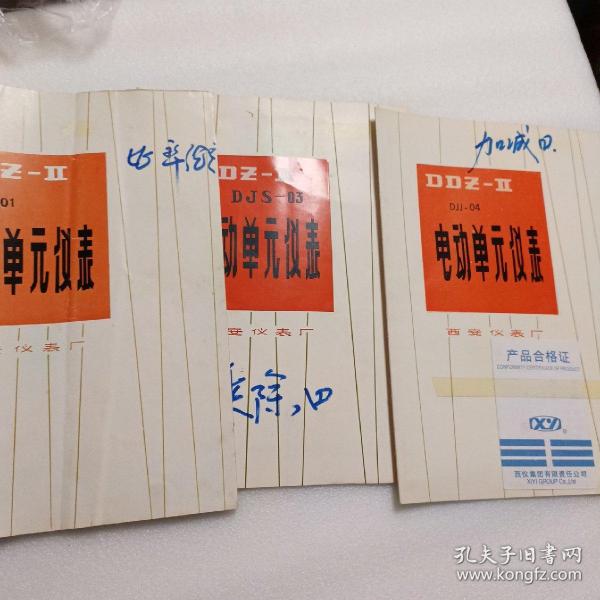 Z-II
01
单元仪表
仪表厂
DZ-II
DJS-03
动单元仪表
安仪表厂
除
加减
DDZ-II
DJJ-04
电动单元仪表
西安仪表厂
产品合格证
CONFORMITY CERTIFICATE OF PRODUCT
XYI
®
西仪集团有限责任公司
XIYI GROUP Co.,Ltd
孔夫子旧书网
www.kongfz.com